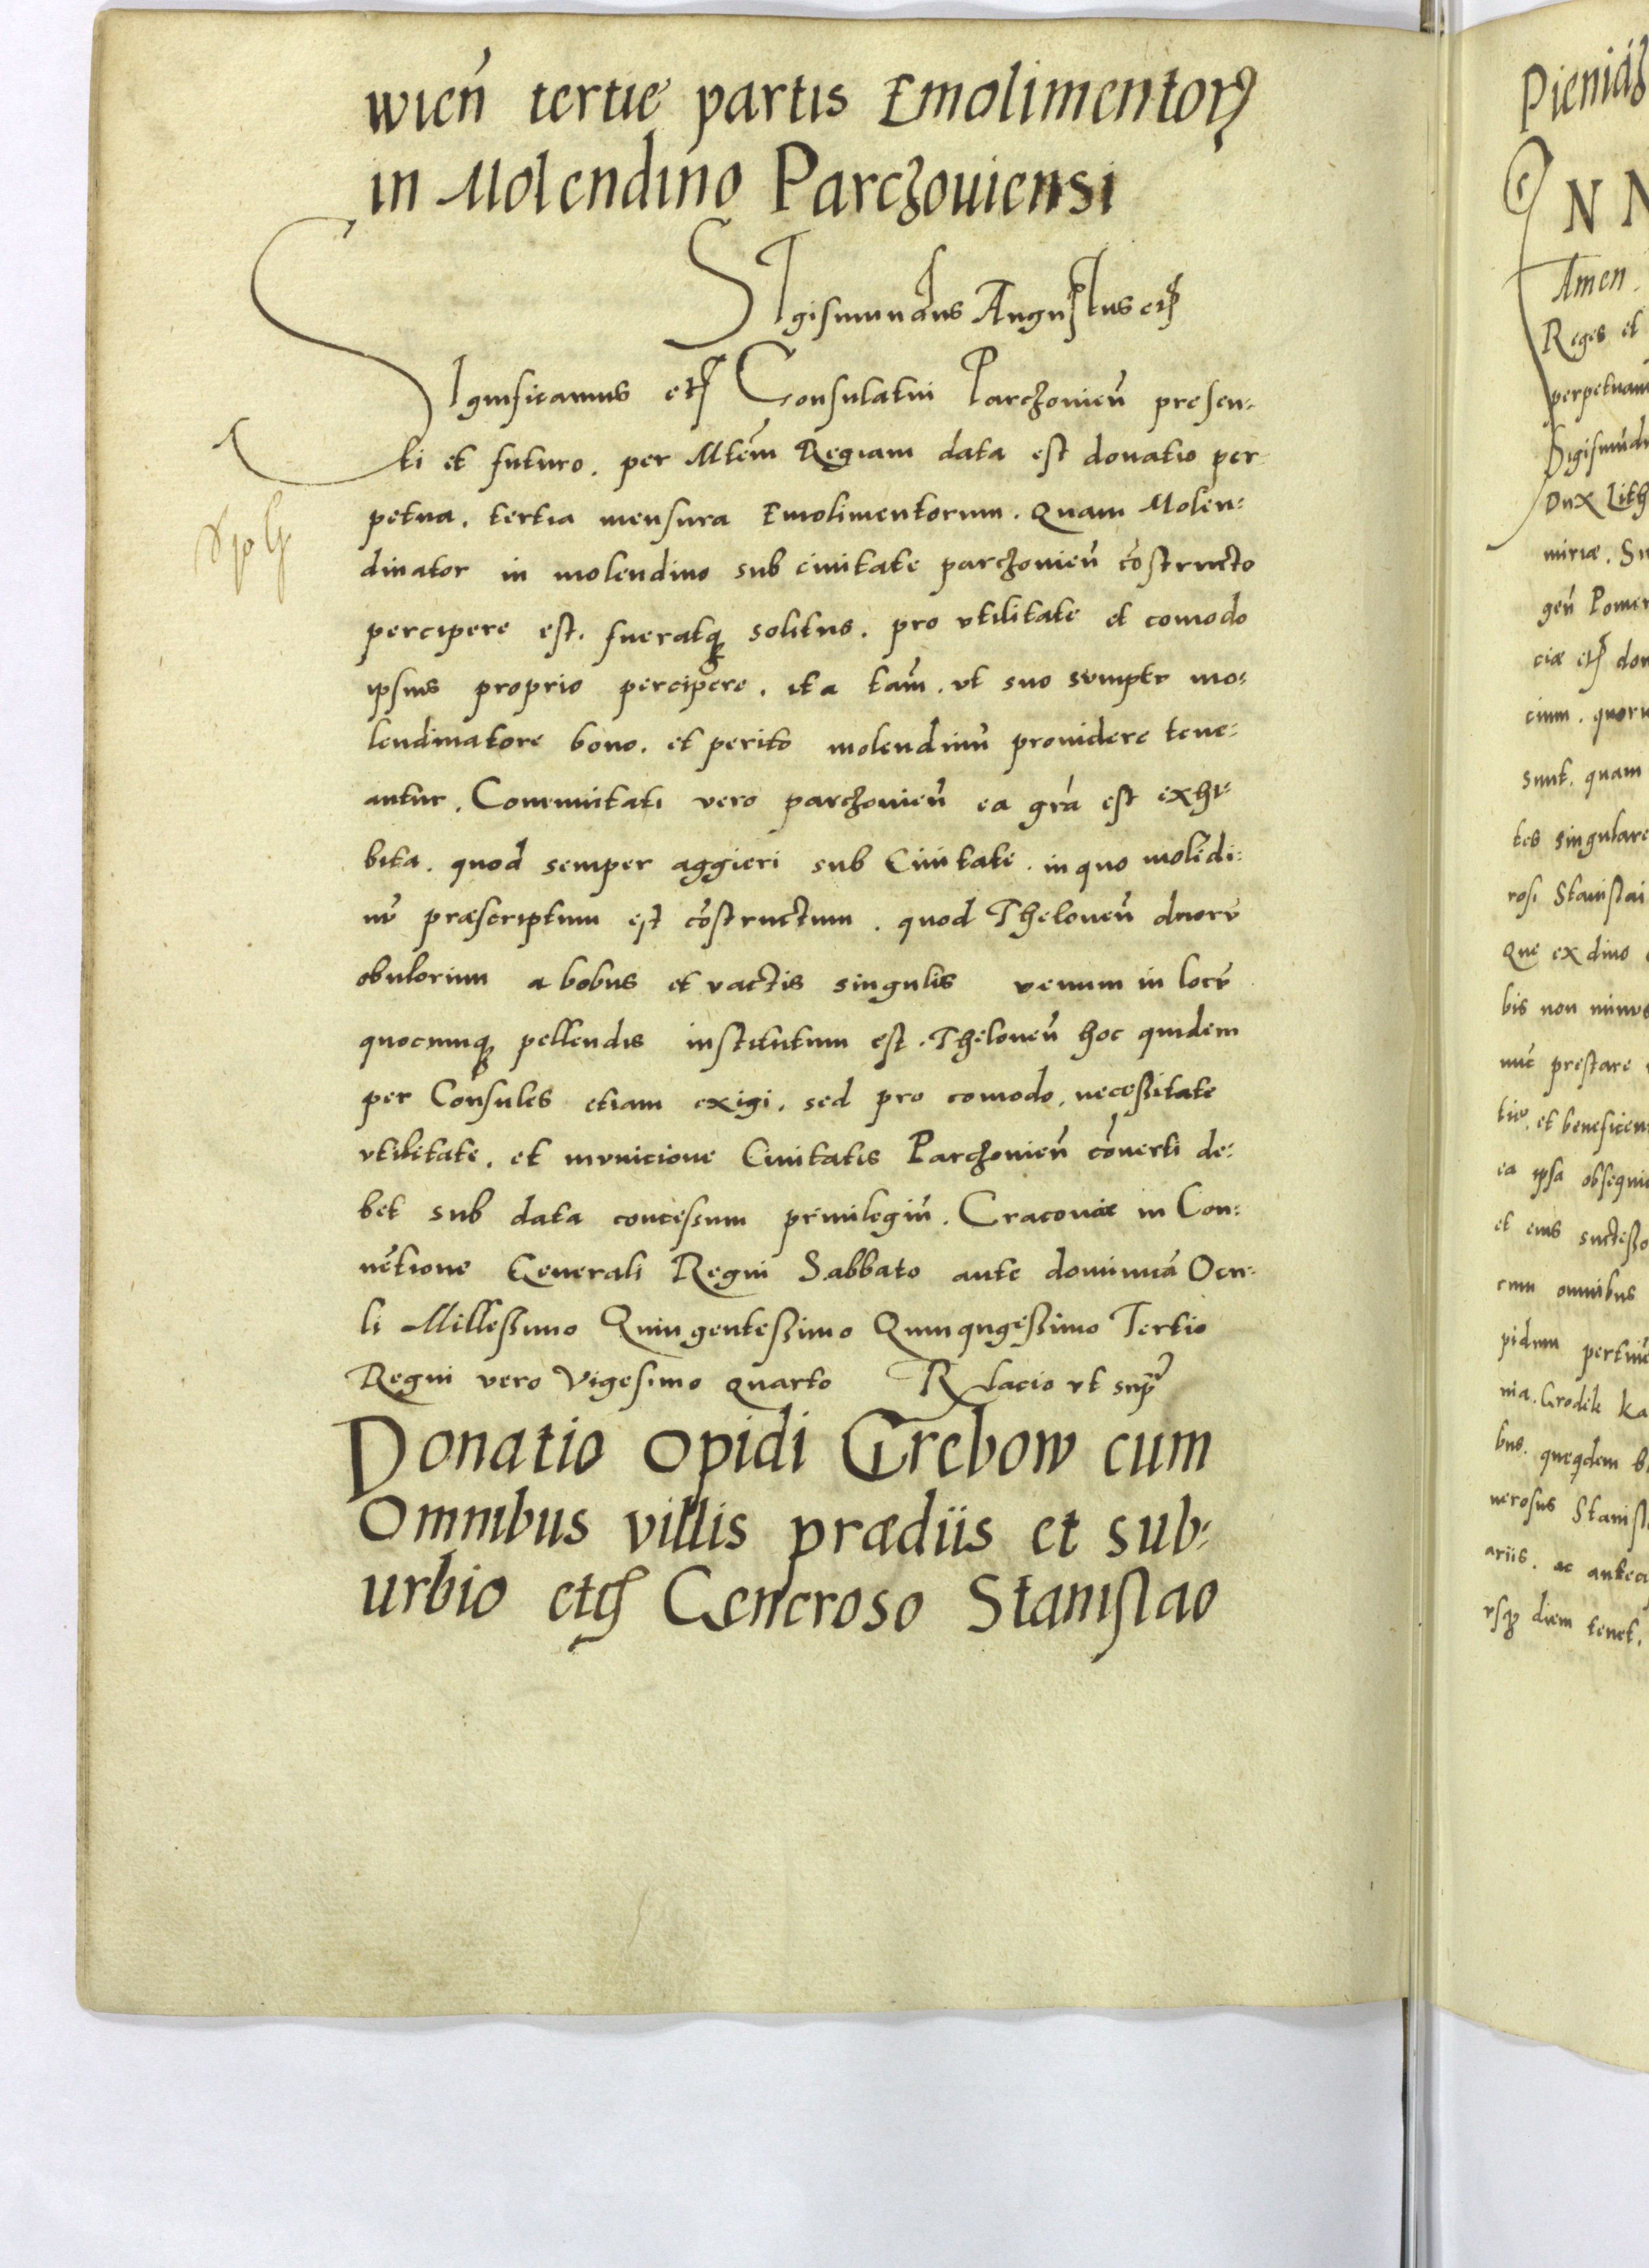 wień tertie partis Emolimentorꝝ
in Molendino Parczouiensi
SIgismundus Augustus etc̃
SIgnificamus etc̃ Consulatui Parczouień presen-
ti et futuro. per Mtem̃ Regiam data est donatio per-
petua. tertia mensura Emolimentorum. Quam Molen-
dinator in molendino sub ciuitate parczouień cõstructo
percipere est. fueratqꝫ solitus. pro vtilitate et comodo
ipsius proprio percipere. ita tam̃. vt suo sumptu mo-
lendinatore bono. et perito molendinũ prouidere tene-
antur. Communitati vero parczouień ea gr̃a est exhi-
bita. quod semper aggieri sub Ciuitate. in quo molẽdi-
nũ præscriptum est cõstructum. quod Theloneũ duorũ
obulorum a bobus et vactis singulis venum in locũ
quocumqꝫ pellendis institutum est. Theloneũ hoc quidem
per Consules etiam exigi. sed pro comodo. necessitate
vtilitate. et municione Ciuitatis Parczouień cõuerti de-
bet sub data concessum priuilegiũ. Cracouiæ in Con-
uẽtione Generali Regni Sabbato ante dominicã Ocu-
li Millessimo Quingentessimo Quinqugessimo Tertio
Regni vero Vigesimo quarto Rlacio vt supr̃
Donatio Opidi Grebow cum
Omnibus villis prædiis et sub-
urbio etc̃ Generoso Stanislao
Pieniąz
N N
Amen.
Reges et
perpetuam
Sigismũdu
Dux Lith
miriæ. Su
geñ Pomer
ciæ etc̃ do
cium. quoru
sunt. quam
tes singulare
rosi Stanislai
Que ex diuo
bis non minus
nũc prestare
tiæ. et beneficen
ea ipsa obsequi
et eius suctesso
cum omnibus
pidum pertinẽ
nia. Grodek Ka
bus. quequidem
nerosus Stanisl
ariis. ac antea
vsqꝫ diem tenet.